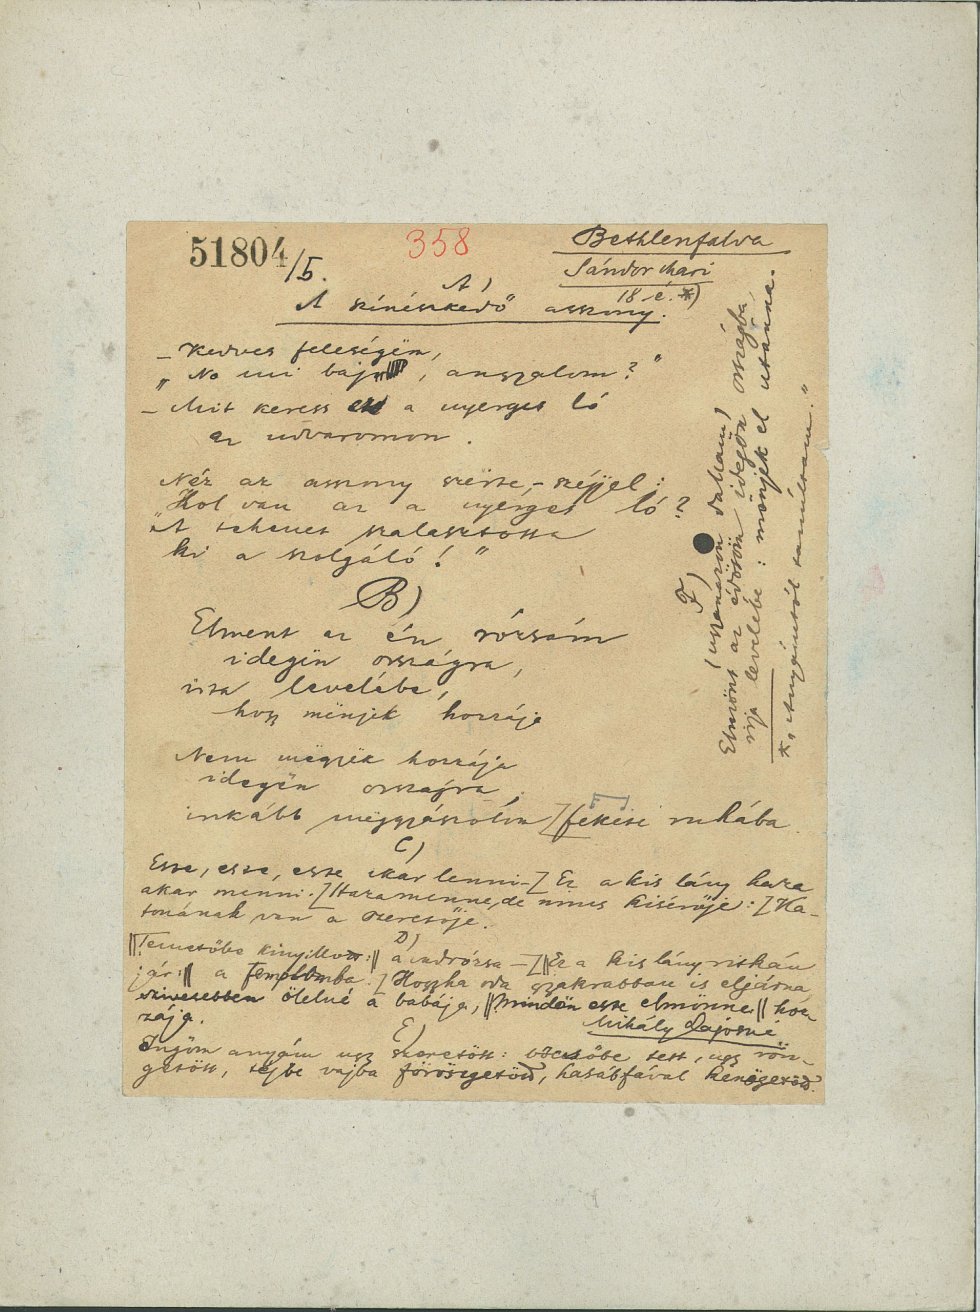 51804/5.
358
Bethlenfalva
Sándor Mari
18 é. *)
A)
A színészkedő asszony.
– Kedves feleségëm,
„No mi baja, angyalom?"
– Mit keress a nyerges ló
az udvaromon.
Néz az asszony szërte,–széjjel:
„Hol van az a nyerges ló?
A tehenet szalasztotta
ki a szolgáló!"
B)
Elment az én rózsám
idegën országra,
írta levelébe,
hogy mënjek hozzája
Nem mëgyëk hozzája
idegën országra,
inkább mëggyászolom [fekete ruhába
C)
Esze, esze, esze akar lenni–] Ez a kis lány haza
akar menni.] Hazamenne, de nincs kisérője:] Ka-
tonának van a szeretője.
D)
||Temetőbe kinyillott:|| a vadrózsa –] ||Ez a kis lány ritkán
jár:|| a templomba.] Hogyha oda gyakrabban is eljárna
szivesebben ölelné a babája, ||Mindön este elmönne:|| hoz-
zája.
Mihály Lajosné
E)
Éngöm anyám ugy szeretött: bőcsőbe tett, ugy rön-
getött, tejbe vajba förösztgetött, hasábfával
F)
(ugyanazon dallam)
Elmönt az édösöm idegön országba,
írja levelébe: mönjek el utánna.
*„Anyámtól tanúltam."